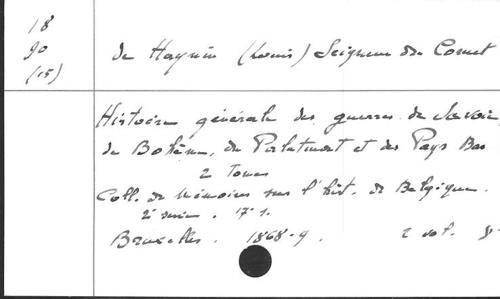 18
90
(15)
de Haynin (Louis) Seigneur du Cornet
Histoire générale des guerres de Savoie,
de Bohême, du Palatinat et des Pays Bas
2 Tomes
Coll. de Mémoires sur l'hist. de Belgique.
2e série. 17e s.
Bruxelles. 1868-9. 2 vol. 8°